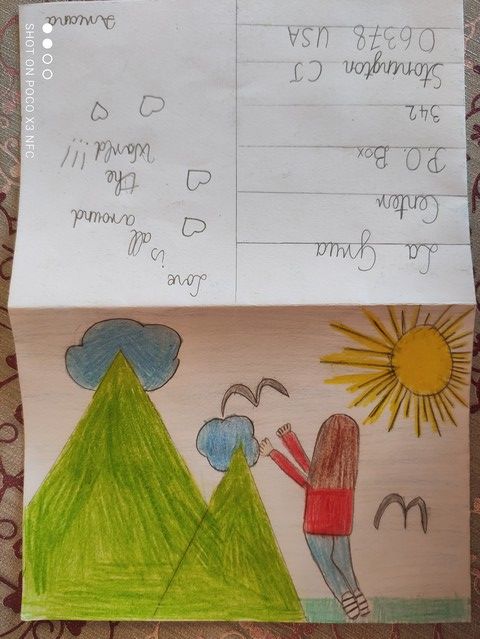 Love
is all
around
the
World!!!
Anecara
La Grua
Center
P.O. Box
342
Stonington CT
06378 USA
SHOT ON POCO X3 NFC